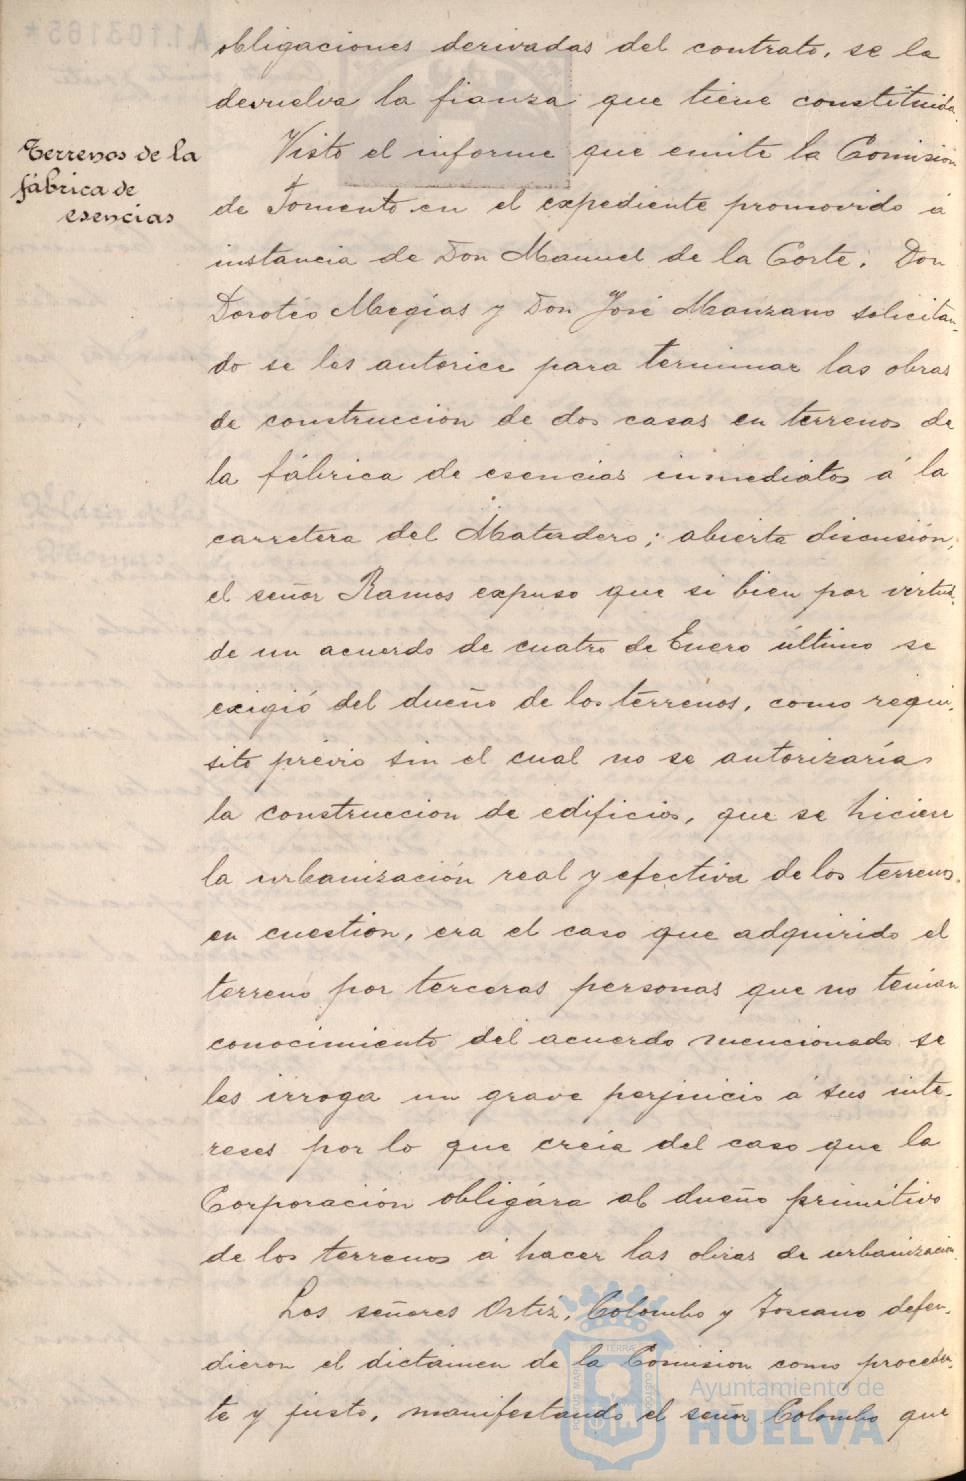 obligaciones derivadas del contrato, se le
devuelva la fianza que tiene constituida.
Terrenos de la
fábrica de
esencias
Visto el informe que emite la Comisión
de Fomento en el expediente promovido á
instancia de Don Manuel de la Corte, Don
Doroteo Megías y Don José Manzano solicitan-
do se les autorice para terminar las obras
de construcción de dos casas en terrenos de
la fábrica de esencias inmediatos á la
carretera del Matadero; abierta discusión,
el señor Ramos expuso que si bien por virtud
de un acuerdo de cuatro de Enero último se
exigió del dueño de los terrenos, como requi-
sito prévio sin el cual no se autorizaría
la construcción de edificios, que se hiciese
la urbanización real y efectiva de los terrenos
en cuestión, era el caso que adquirido el
terreno por terceras personas que no tenían
conocimiento del acuerdo mencionado se
les irroga un grave perjuicio á sus inte-
reses por lo que creía del caso que la
Corporación obligára al dueño primitivo
de los terrenos á hacer las obras de urbanización
Los señores Ortiz, Colombo y Toscano defen-
dieron el dictamen de la Comisión como proceden-
te y justo, manifestando el señor Colombo que
Ayuntamiento de
HUELVA